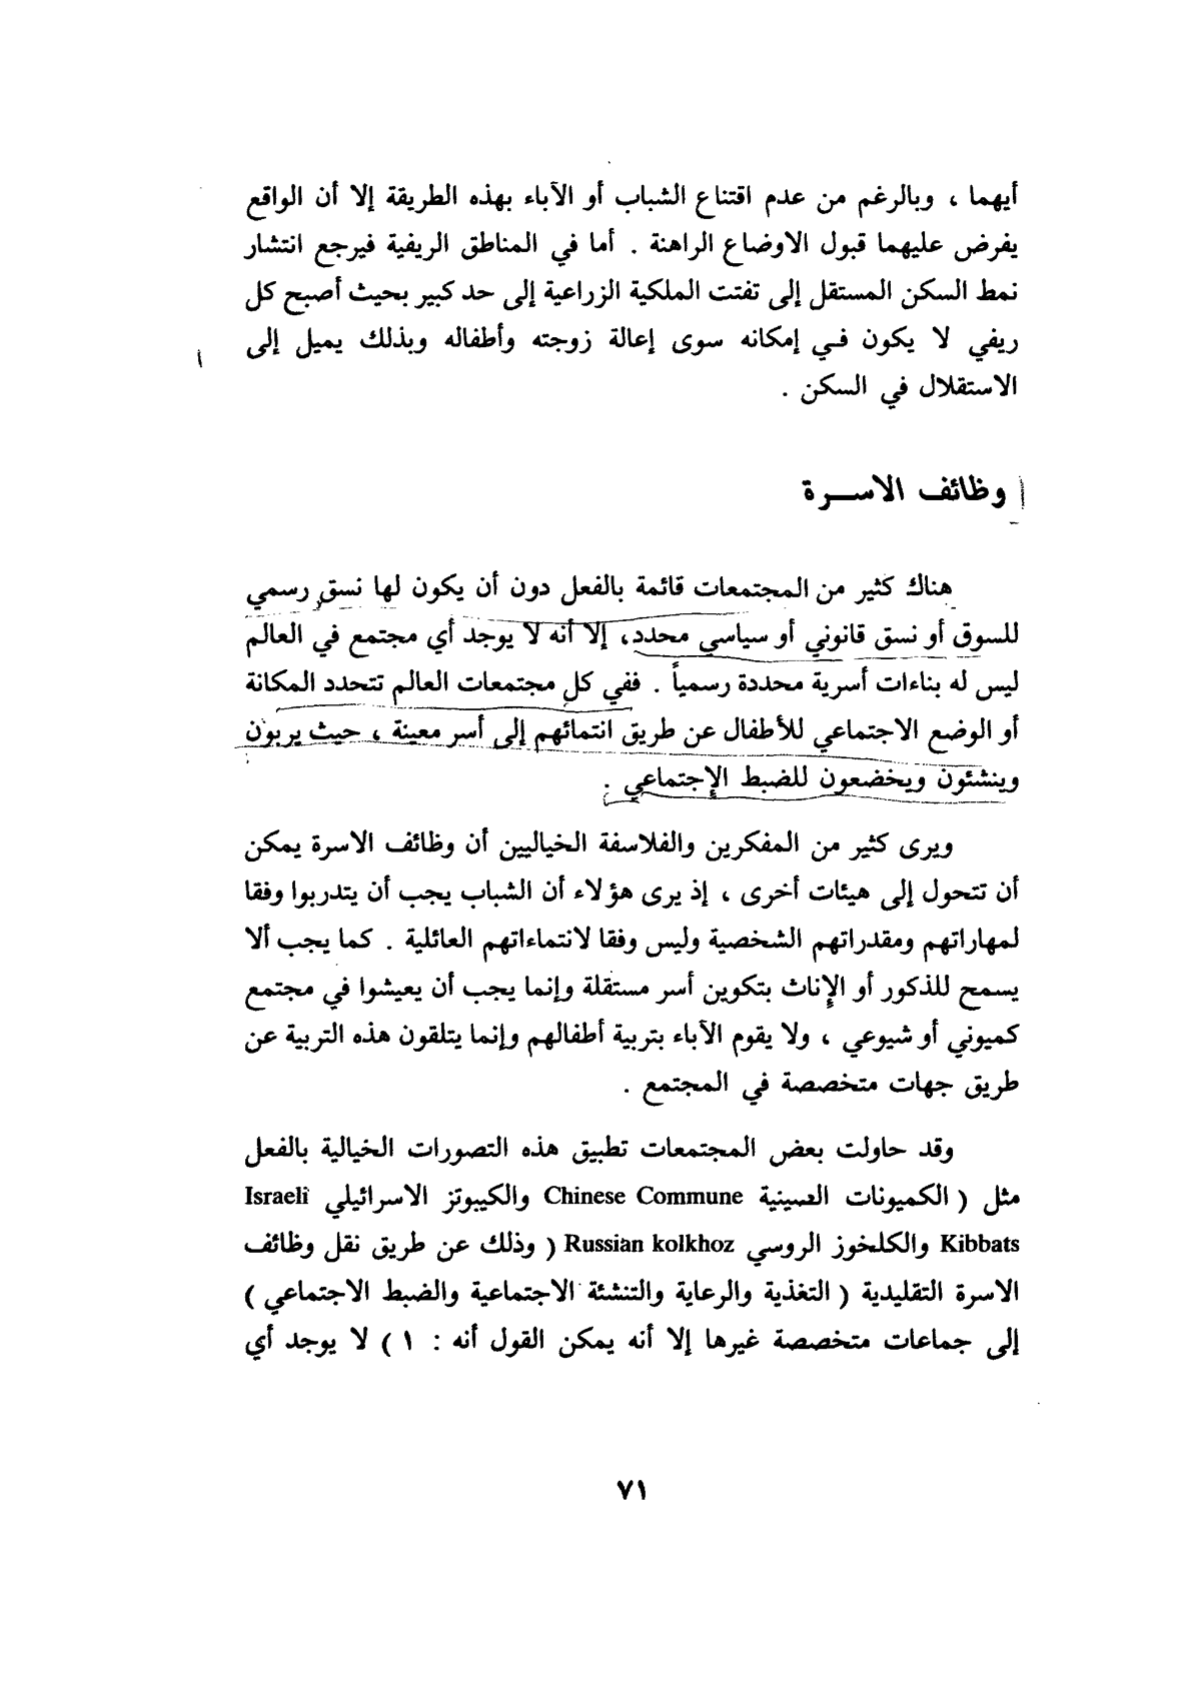 أيهما ، وبالرغم من عدم اقتناع الشباب أو الآباء بهذه الطريقة إلا أن الواقع
يفرض عليهما قبول الاوضاع الراهنة . أما في المناطق الريفية فيرجع انتشار
نمط السكن المستقل إلى تفتت الملكية الزراعية إلى حد كبير بحيث أصبح كل
ريفي لا يكون في إمكانه سوى إعالة زوجته وأطفاله وبذلك يميل إلى
الاستقلال في السكن .
وظائف الاســرة
هناك كثير من المجتمعات قائمة بالفعل دون أن يكون لها نسق رسمي
للسوق أو نسق قانوني أو سياسي محدد، إلا أنه لا يوجد أي مجتمع في العالم
ليس له بناءات أسرية محددة رسمياً . ففي كل مجتمعات العالم تتحدد المكانة
أو الوضع الاجتماعي للأطفال عن طريق انتمائهم إلى أسر معينة ، حيث يربون
وينشئون ويخضعون للضبط الإجتماعي .
ويرى كثير من المفكرين والفلاسفة الخياليين أن وظائف الاسرة يمكن
أن تتحول إلى هيئات أخرى ، إذ يرى هؤلاء أن الشباب يجب أن يتدربوا وفقا
لمهاراتهم ومقدراتهم الشخصية وليس وفقا لانتماءاتهم العائلية . كما يجب ألا
يسمح للذكور أو الإناث بتكوين أسر مستقلة وإنما يجب أن يعيشوا في مجتمع
كميوني أو شيوعي ، ولا يقوم الآباء بتربية أطفالهم وإنما يتلقون هذه التربية عن
طريق جهات متخصصة في المجتمع .
وقد حاولت بعض المجتمعات تطبيق هذه التصورات الخيالية بالفعل
مثل ( الكميونات الصينية Chinese Commune والكيبوتز الاسرائيلي Israeli
Kibbats والكلخوز الروسي Russian kolkhoz ) وذلك عن طريق نقل وظائف
الاسرة التقليدية ( التغذية والرعاية والتنشئة الاجتماعية والضبط الاجتماعي )
إلى جماعات متخصصة غيرها إلا أنه يمكن القول أنه : ١ ) لا يوجد أي
٧١